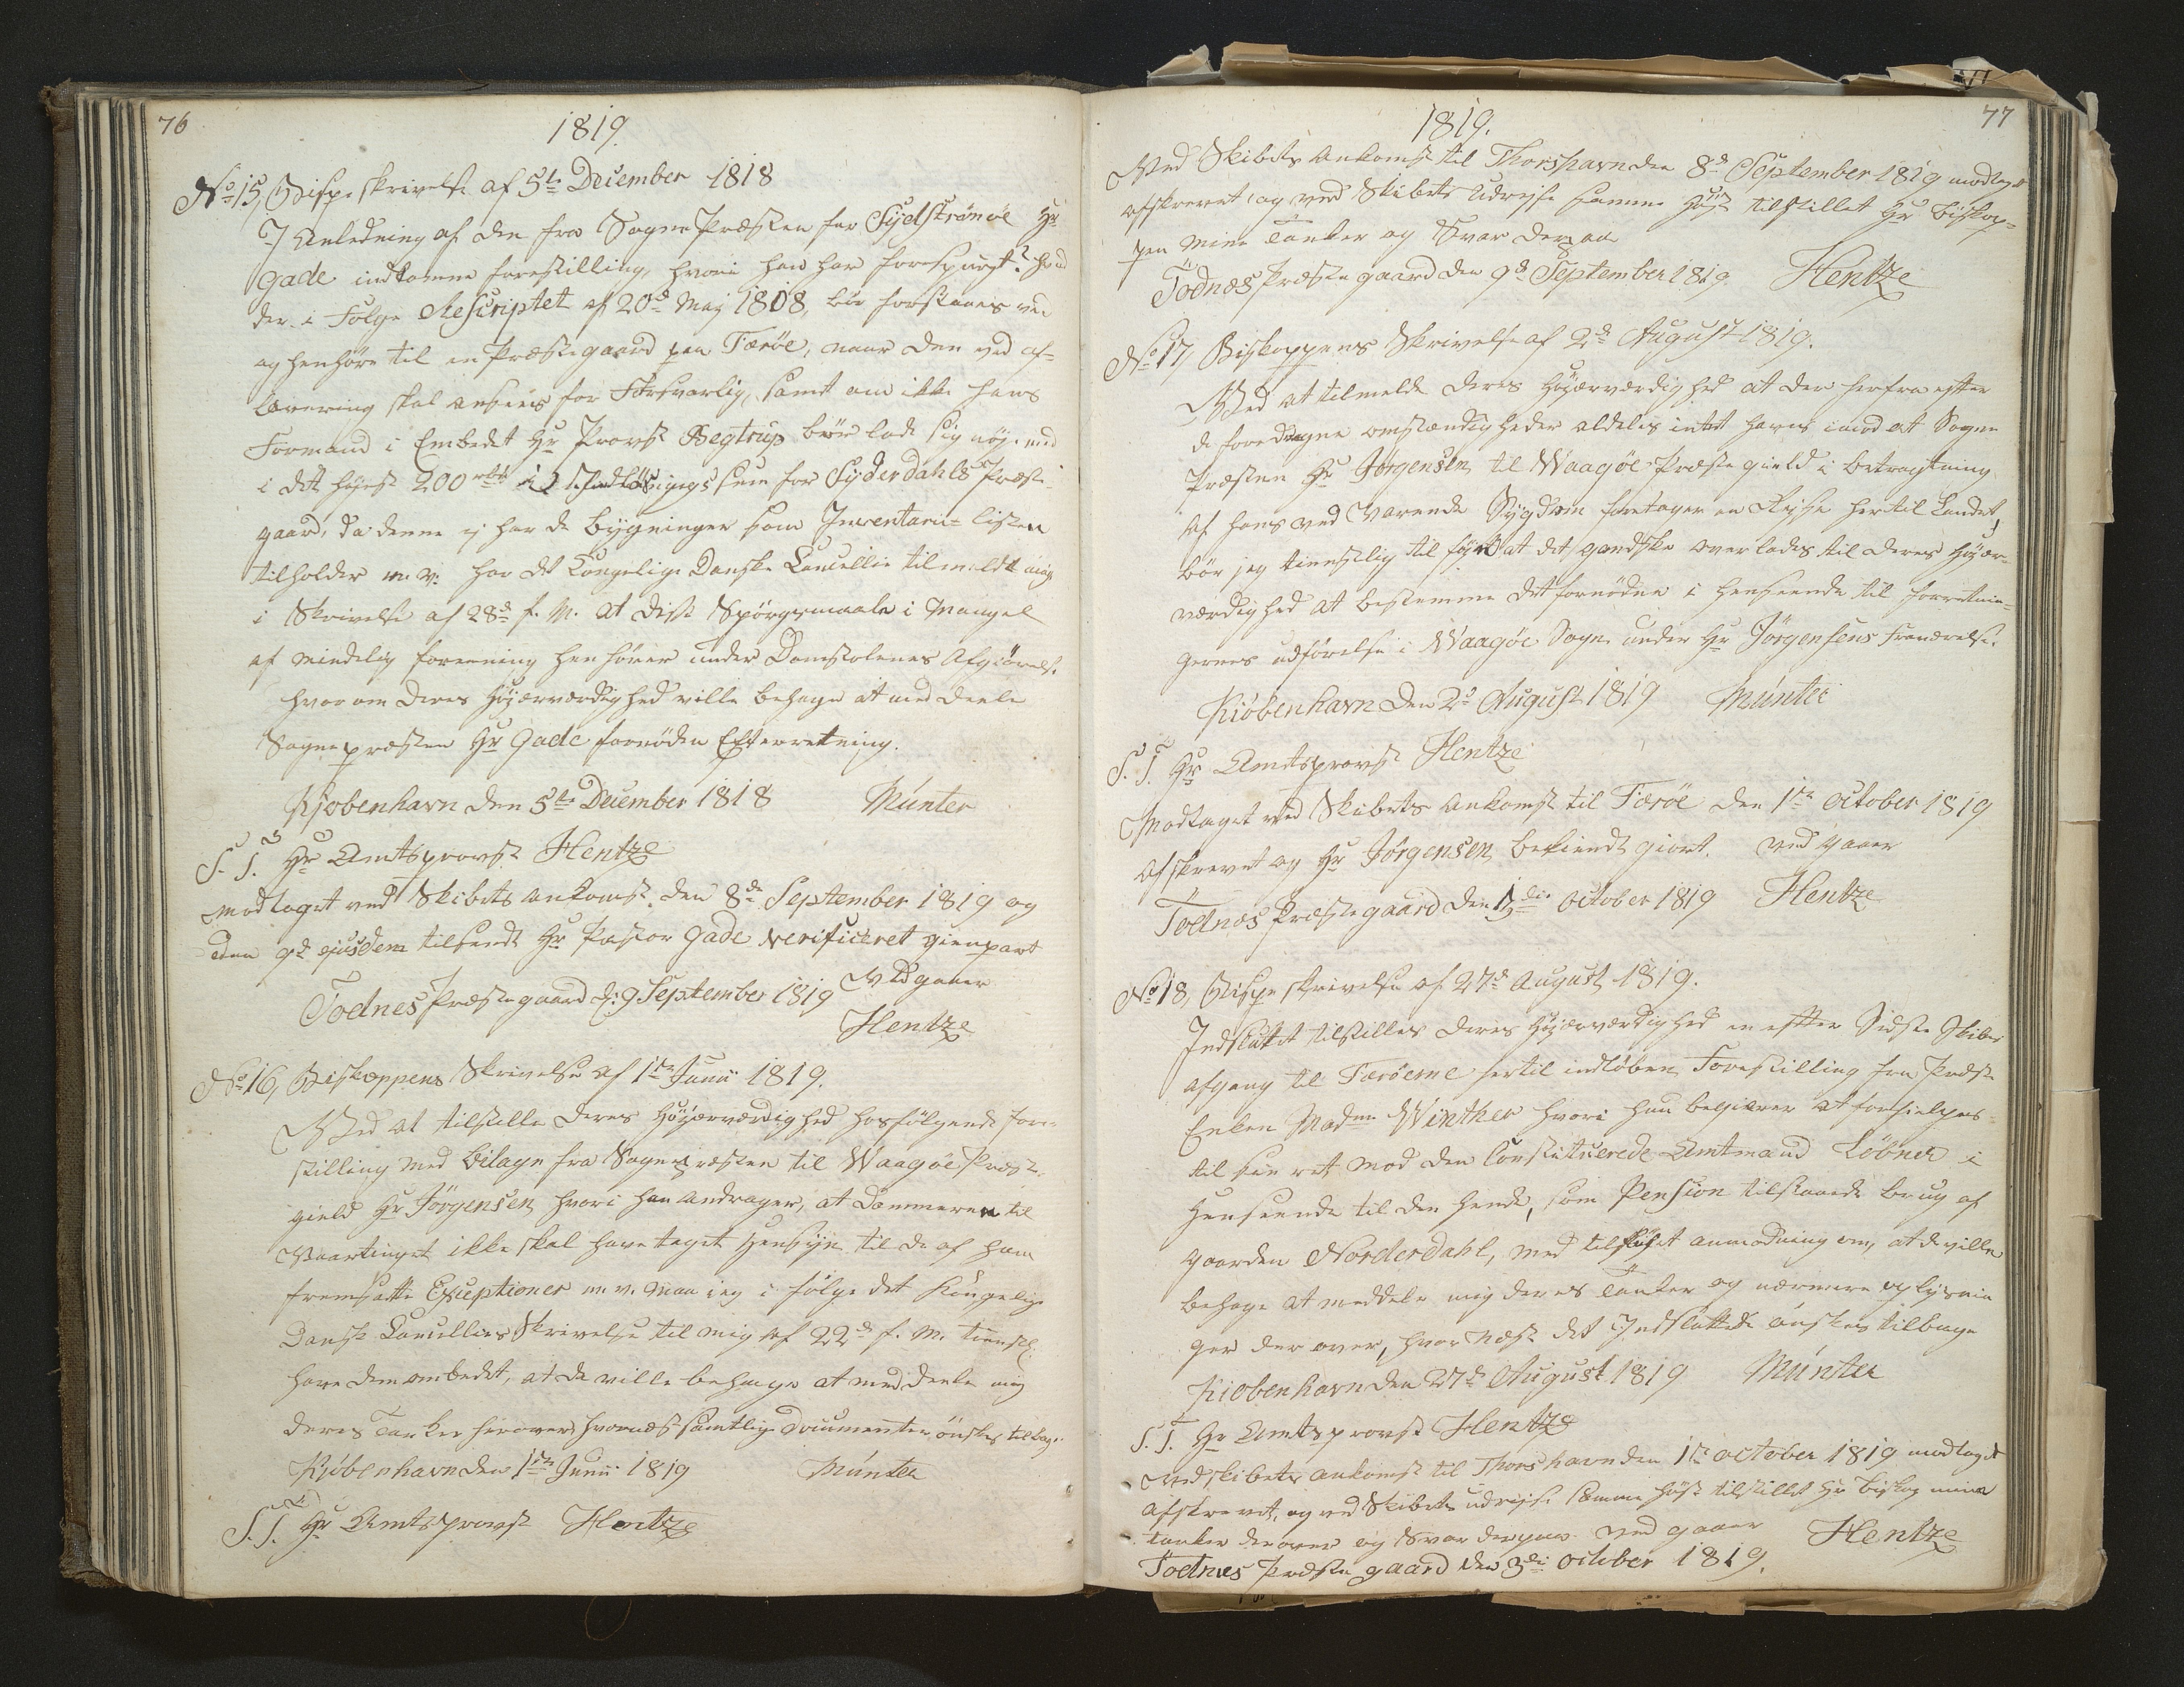 76
1819.
No 15, Bispeskrivelse af 5te December 1818
I Anledning af den fra SognePræsten for Sydstrømøe Hr
Gade indkomne forestilling, hvori han har forespurgt: hvad
der i Følge Rescriptet af 20de Maj 1808, bör forstaaes ved
og henhöre til en Præstegaard paa Færöe, naar den ved af-
levering skal ansees for Forsvarlig, samt om ikke hans
Formand i Embedet Hr Provst Begtrup bör lade sig nöje med
i det höjest 200 rbd i Indlösnings sum for Syderdahls Præste-
gaard, da denne ej har de bygninger som Inventarii-listen
tilholder m. v. har det Kongelige Danske Cancellie tilmeldt mig
i Skrivelse af 28de f. M. at disse Spörgsmaale i Mangel
af mindelig forening henhörer under Domstolenes Afgiörelse.
hvorom Deres Höjærværdighed ville behage at meddeele
Sognepræsten Hr Gade fornöden Efterretning.
Kjobenhavn den 5te December 1818 Münter
S. T. Hr Amtsprovst Hentze
modtaget ved Skibets ankomst, den 8de September 1819 og
den 9de ejusdem tilsendt Hr Pastor Gade verificeret gienpart
Vidgaaer
Todnes Præstegaard d: 9 September 1819
Hentze
No 16, Biskoppens Skrivelse af 1ste Junii 1819.
Ved at tilstille Deres Höjærværdighed hosfölgende fore-
stilling med bilage fra Sognepræsten til Waagöe Præste-
gield Hr Jörgensen, hvori han andrager, at Dommeren til
Vaartinget ikke skal have taget Hensyn til de af ham
fremsatte Exceptioner m. v. maa jeg i fölge det Kongelige
Danske Cancellies Skrivelse til mig af 22de f. M. tienstl:
have dem ombedet, at de ville behage at meddeele mig
deres Tanker herover, hvornæst samtlige Documenter önskes tilbage.
Kjöbenhavn den 1ste Junii 1819 Münter
S. T. Hr Amtsprovst Hentze
77
1819.
Ved Skibets ankomst til Thorshavn den 8de September 1819 modtaget
afskrevet, og ved Skibets Udrejse samme Höst tilstillet Hr Biskop-
pen mine Tanker og Svar derpaa
Todnæs Præstegaard den 9de September 1819. Hentze
No 17, Biskoppens Skrivelse af 2de August 1819.
Ved at tilmelde Deres Höjærværdighed at der herfra efter
de foredragne omstændigheder aldeles intet haves imod at Sogne
Præsten Hr Jörgensen til Waagöe Præstegield i betragtning
af hans vedvarende Sygdom foretager en Rejse hertil Landet,
bör jeg tienstlig tilföje at det gandske overlades til Deres Höjær-
værdighed at bestemme det fornödne i henseende til forretnin-
gernes udförelse i Waagöe Sogn under Hr Jörgensens fraværelse.
Kiöbenhavn den 2de August 1819 Münter
S. T. Hr Amtsprovst Hentze
Modtaget ved Skibets ankomst til Færöe den 1ste October 1819
afskrevet og Hr Jörgensen bekiendt giort. vidgaaer
Todnæs Præstegaard den October 1819 Hentze
No 18, Bispeskrivelse af 27de August 1819.
Indsluttet tilstilles Deres Höjærværdighed en efter Sidste Skibs
afgang til Færöerne hertil indlöben Forestilling fra Præste
Enken Madme Winther hvori hun begiærer at forhielpes
til sin ret mod den Constituerede Amtmand Löbner i
Henseende til den hende, som Pension tilstaaede brug af
gaarden Norderdahl, med tilföjet anmodning om, at De ville
behage at meddele mig deres Tanker og nærmere oplysnin
ger derover, hvornæst det Indsluttede önskes tilbage
Kiobenhavn den 27de August 1819 Münter
S. T. Hr Amtsprovst Hentze
Ved skibets ankomst til Thorshavn den 1ste October 1819 modtaget
afskrevet, og ved Skibets udrejse samme Höst tilstillet Hr Biskop mine
tanker derover og Svar derpaa vidgaaer Hentze
Todnes Præstegaard den 3die October 1819.